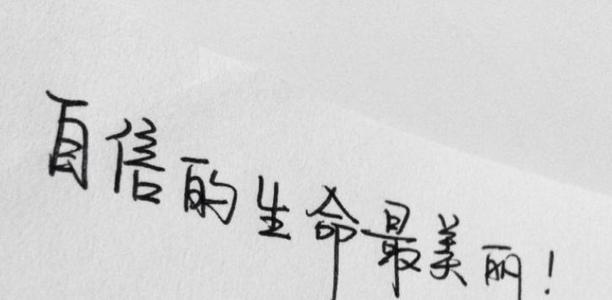 自信的生命最美丽!